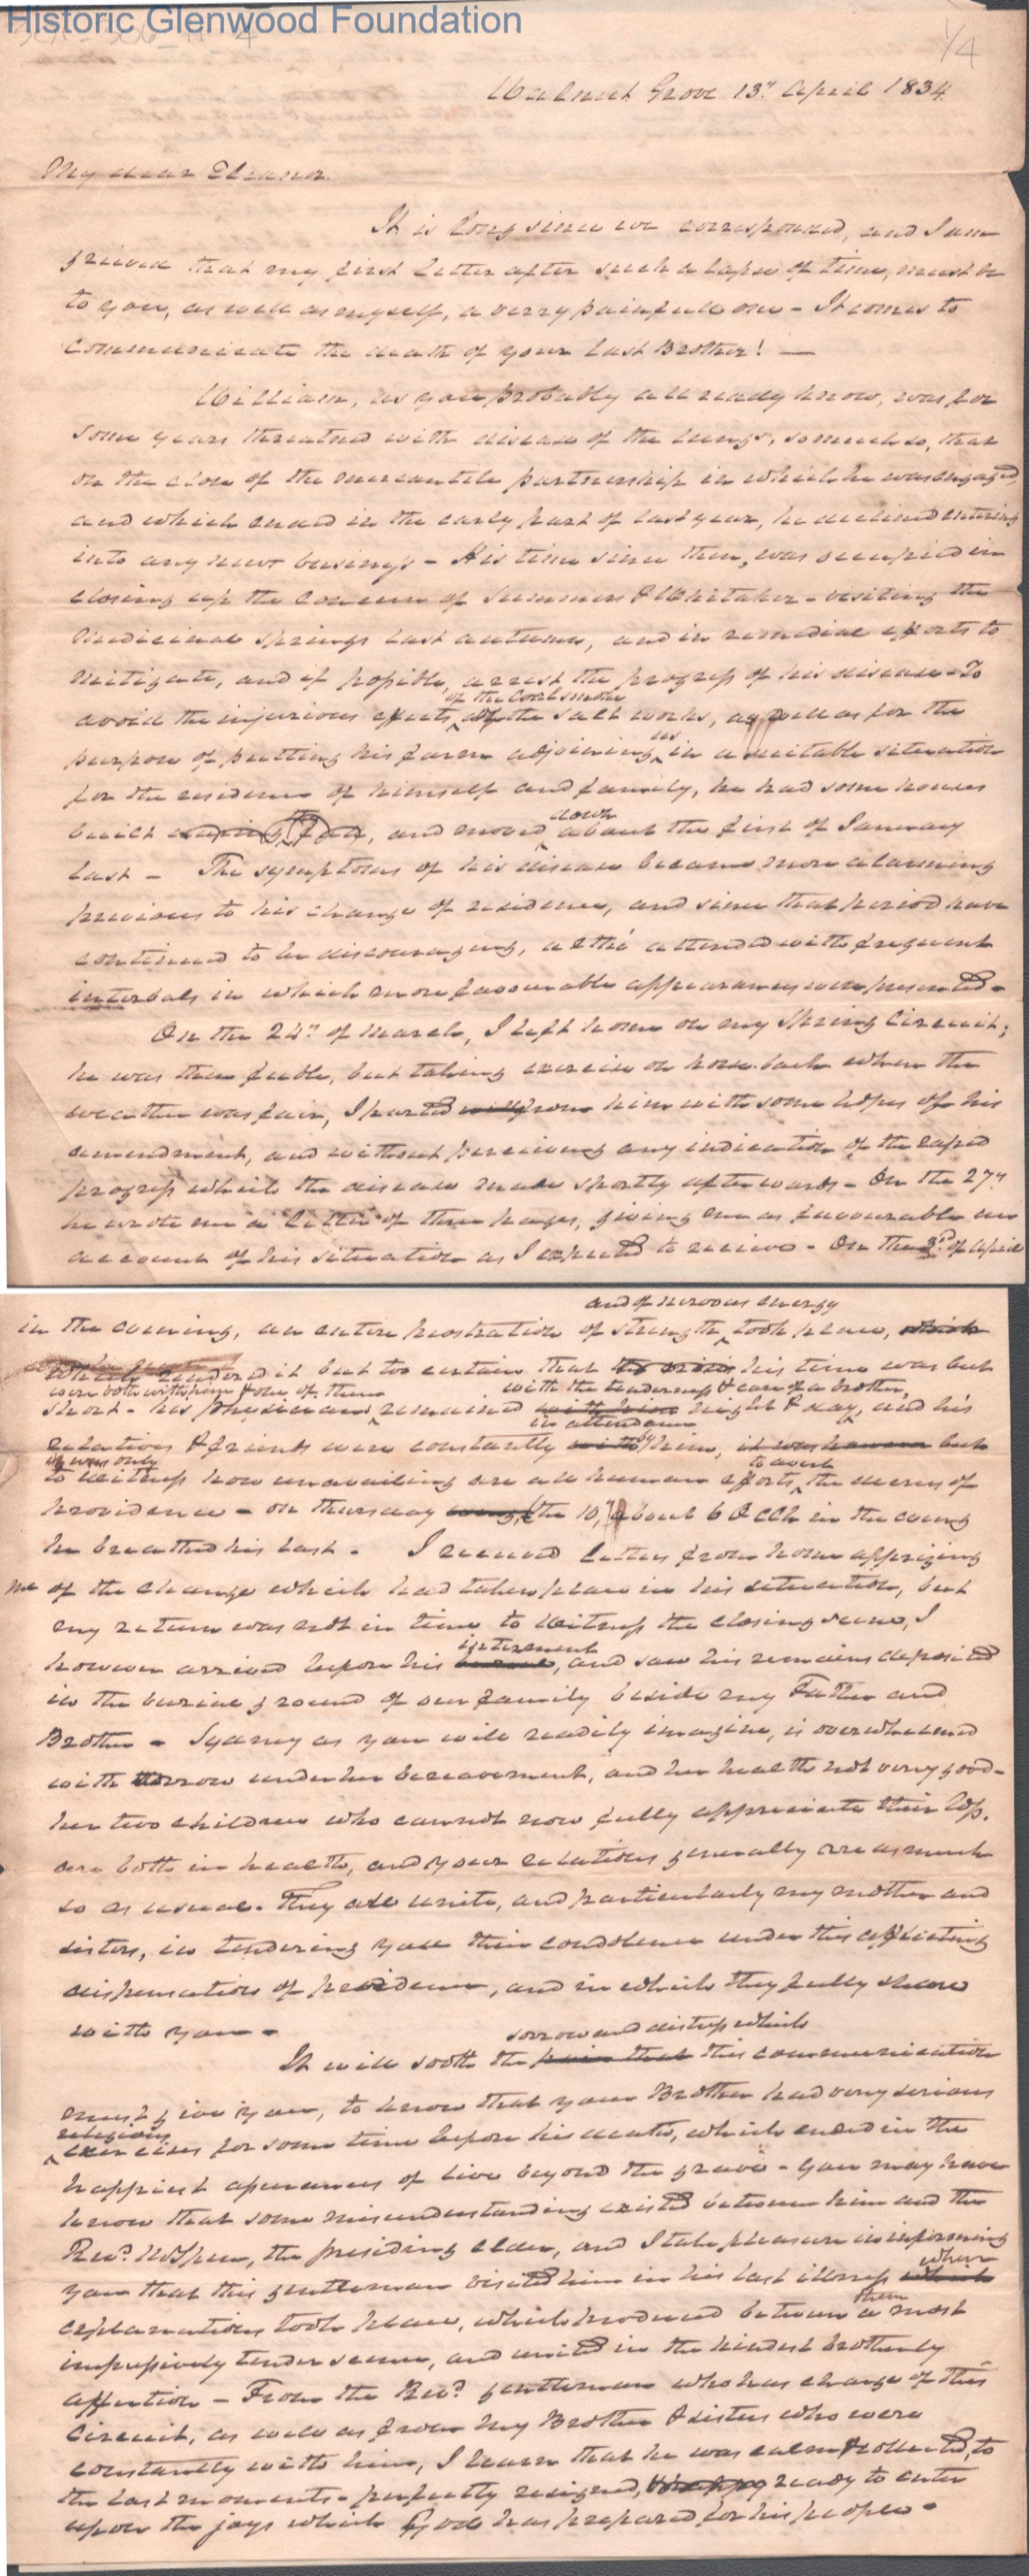 Historic Glenwood Foundation
1/4
Walnut Grove 13th April 1834.
My dear Eleanor.
It is long since we corresponded, and I am
grieved that my first letter after such a lapse of time, must be
to you, as well as myself, a verry painfull one - It comes to
communicate the death of your last Brother! —
William, as you probably all ready know, was for
some years threatned with disease of the lungs, so much so, that
on the close of the mercantile partnership in which he was engaged,
and which ended in the early part of last year, he declined entering
into any new business - His time since then, was occupied in
closing up the concern of Summers & Whitaker - visiting the
medicinal springs last autumn, and in remedial efforts to
mitigate, and if possible, arrest the progress of his disease - To
of the Coal smoke
avoid the injurious effects, of the salt works, as well as for the
us
purpose of putting his farm adjoining in a suitable situation
for the residence of himself and family, he had some houses
down
built, and moved about the first of January
last - The symptoms of his disease became more alarming
previous to his change of residence, and since that period have
continued to be discouraging, altho' attended with frequent
intervals in which more favourable appearances were presented -
On the 24th of March, I left home on my Spring Circuit;
he was then feeble, but taking exercise on horse-back when the
weather was fair, I parted from him with some hopes of his
amendment, and without perceiving any indication of the rapid
progress which the disease made shortly afterwards - On the 27th
he wrote me a letter of three pages, giving me as favourable an
account of his situation as I expected to receive - On the 3d of April
and of nervous energy
in the evening, an entire prostration of strength, took place, which
which rendered it but too certain that the crisis his time was but
were both with him & one of them with the tenderness & care of a brother,
short - his physicians remained with him night & day, and his
in attendance
relations & friends were constantly with by him, it was however but
it was only to avert
to witness how unavailing are all human efforts, the decrees of
providence - on thursday the 10th, about 6 O Clk in the eveng
he breathed his last - I received letters from home apprizing
me of the change which had taken place in his situation, but
my return was not in time to witness the closing scene, I
interment
however arrived before his burial, and saw his remains deposited
in the burial ground of our family beside my Father and
Brother - Sydney as you will readily imagine, is overwhelmed
with sorrow under her bereavement, and her health not very good -
her two children who cannot now fully appreciate their loss.
are both in health, and your relations generally are as much
so as usual. They all unite, and particularly my mother and
sisters, in tendering you their condolence under this afflicting
dispensation of providence, and in which they fully share
with you -
sorrow and distress which
It will sooth the pain that this communication
must give you, to know that your Brother had very serious
religious
exercises for some time before his death, which ended in the
happiest assurances of live beyond the grave - you may have
know that some misunderstanding existed between him and the
Revd. the presiding elder, and I take pleasure in informing
where
you that this gentleman visited him in his last illness which
them
explanations took place, which produced between a most
impressively tender scene, and united in the kindest brotherly
affection - From the Revd. gentleman who has charge of this
Circuit, as well as from my Brother & sisters who were
constantly with him, I learn that he was calm & collected, to
the last moments - perfectly resigned, & happy ready to enter
upon the joys which God has prepared for his people -